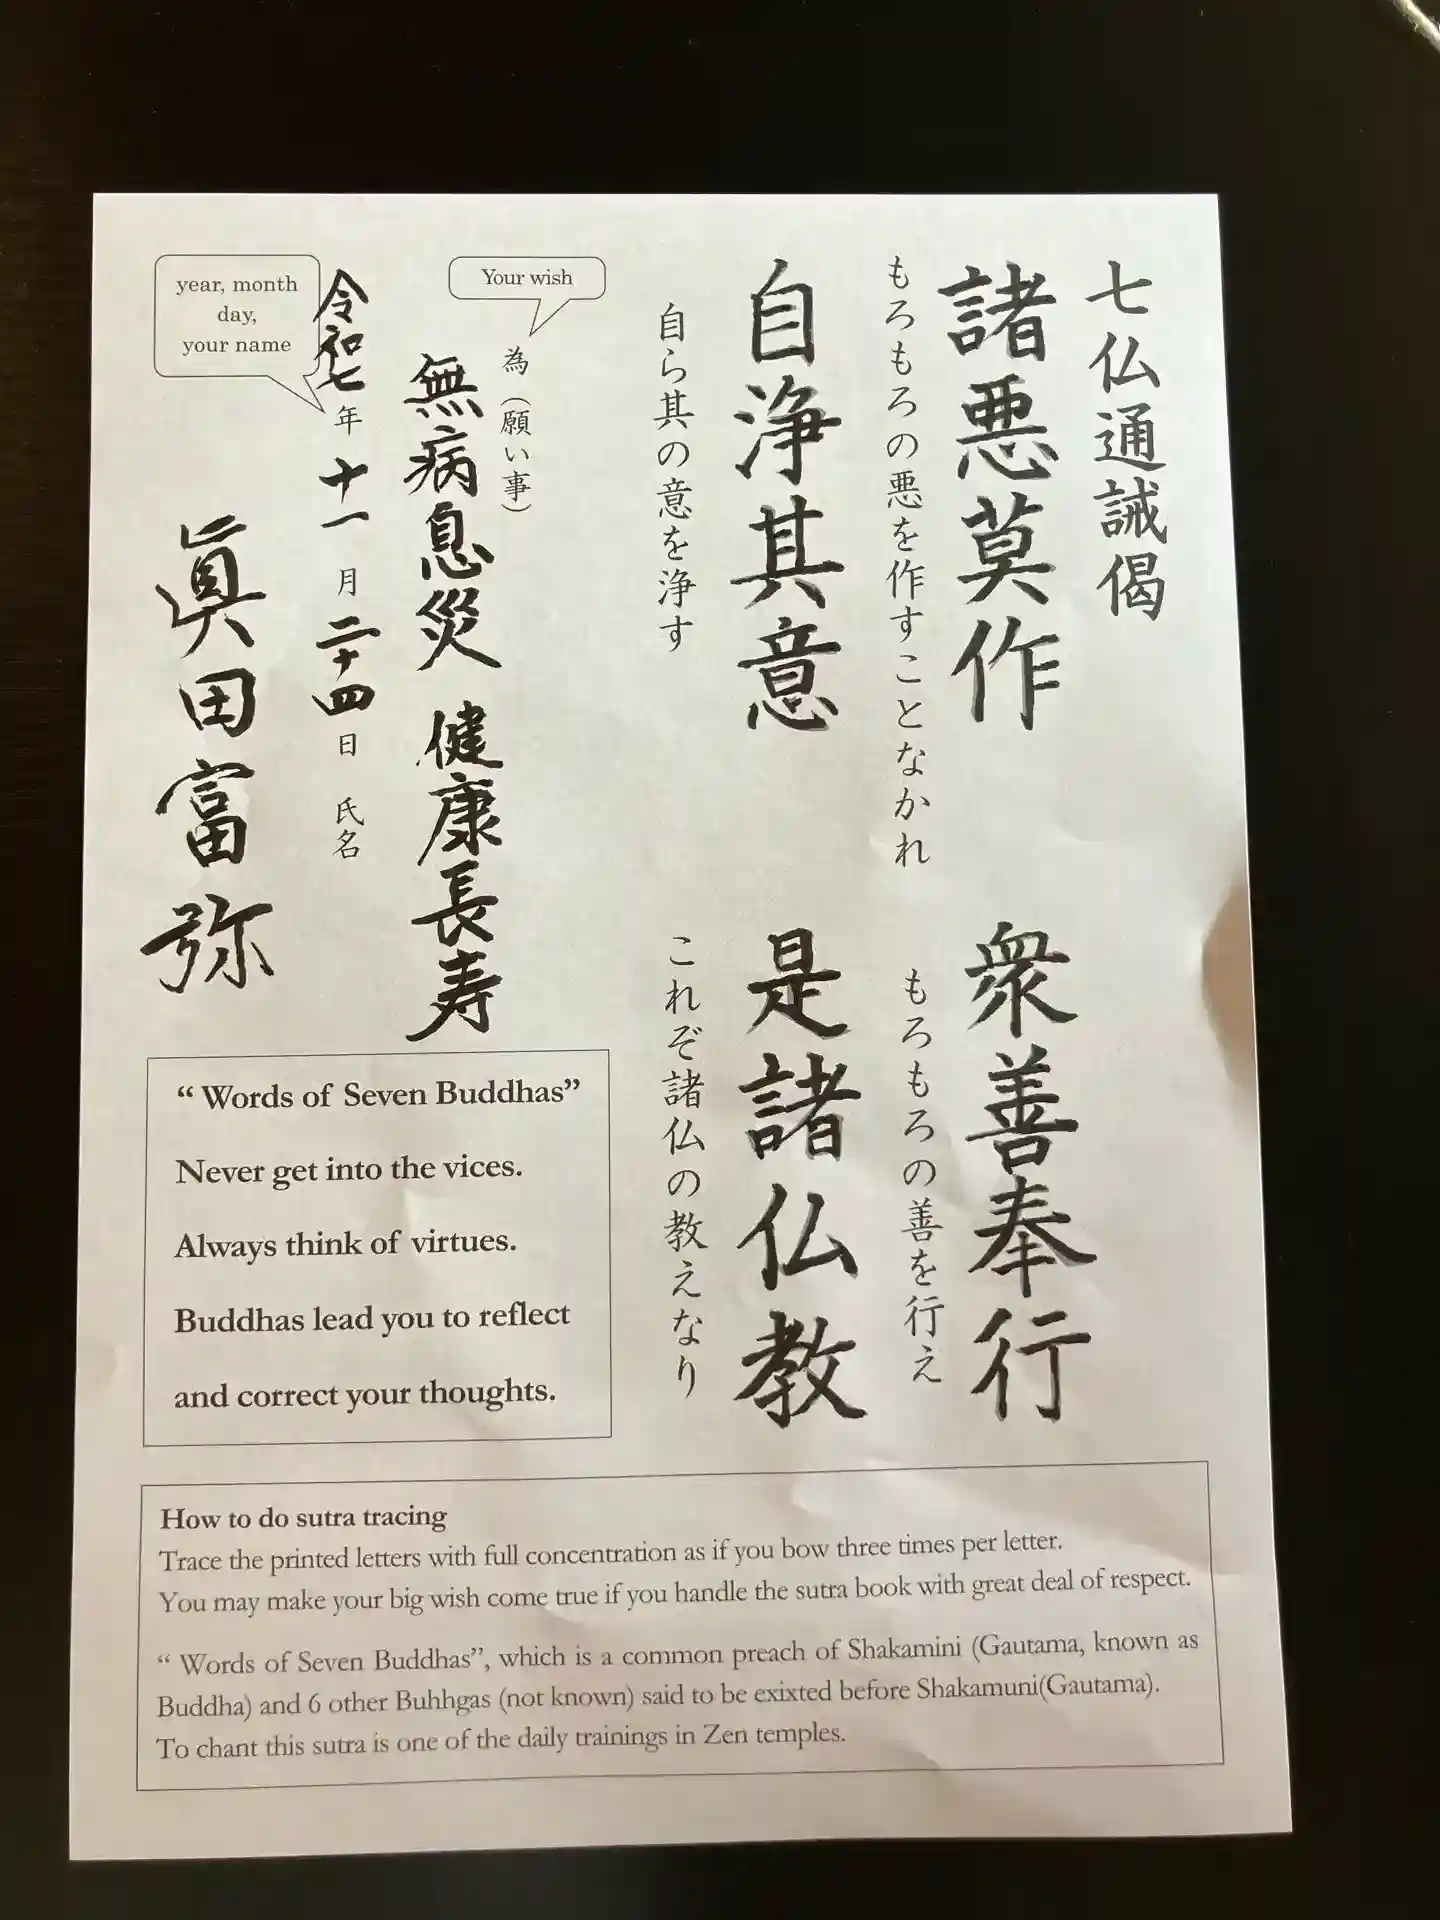 七仏通誡偈
諸悪莫作 衆善奉行
もろもろの悪を作すことなかれ もろもろの善を行え
自浄其意 是諸仏教
自ら其の意を浄す これぞ諸仏の教えなり
Your wish
為（願い事）
無病息災 健康長寿
year, month
day,
your name
令和七年十一月二十四日 氏名
眞田富弥
“ Words of Seven Buddhas”
Never get into the vices.
Always think of virtues.
Buddhas lead you to reflect
and correct your thoughts.
How to do sutra tracing
Trace the printed letters with full concentration as if you bow three times per letter.
You may make your big wish come true if you handle the sutra book with great deal of respect.
“ Words of Seven Buddhas”, which is a common preach of Shakamini (Gautama, known as
Buddha) and 6 other Buhhgas (not known) said to be exixted before Shakamuni(Gautama).
To chant this sutra is one of the daily trainings in Zen temples.